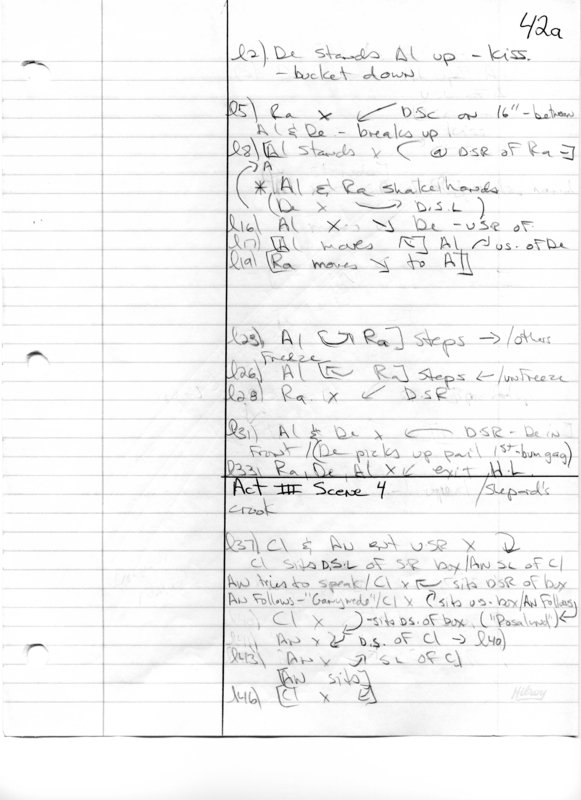 42a
l2) De stands Al up - kiss.
- bucket down
l5) Ra x ↙ DSC on 16" - between
Al & De - breaks up
l8) [Al stands x @ DSR of Ra]
A
* Al & Ra shake hands
(De x → D.S.L)
l16) Al x ↘ De - USR of
l17) [Al moves ↖] Al US. of De
l19) [Ra moves ↘ to Al]
l23) Al [ Ra] steps → / others
Freeze
l26) Al [ Ra] steps ← / unfreeze
l28) Ra x ↙ DSR
l31) Al & De x ← DSR - De in
Front / (De picks up pail 1st - bum gag)
l33) Ra, De, Al x ↙ exit H.L.
Act III Scene 4 / Shepard's
crook
l37) Cl & An ent USR x
Cl sits D.S.L of SR box / An SL of Cl
An tries to speak / Cl x sits DSR of box
An Follows - "Ganymede" / Cl x sits us. box / An Follows
Cl x - sits DS. of box ("Rosalund") ←
An x D.S. of Cl → l40)
l43) An x SL of Cl
[An sits]
l46) [Cl x ↙]
Hilroy